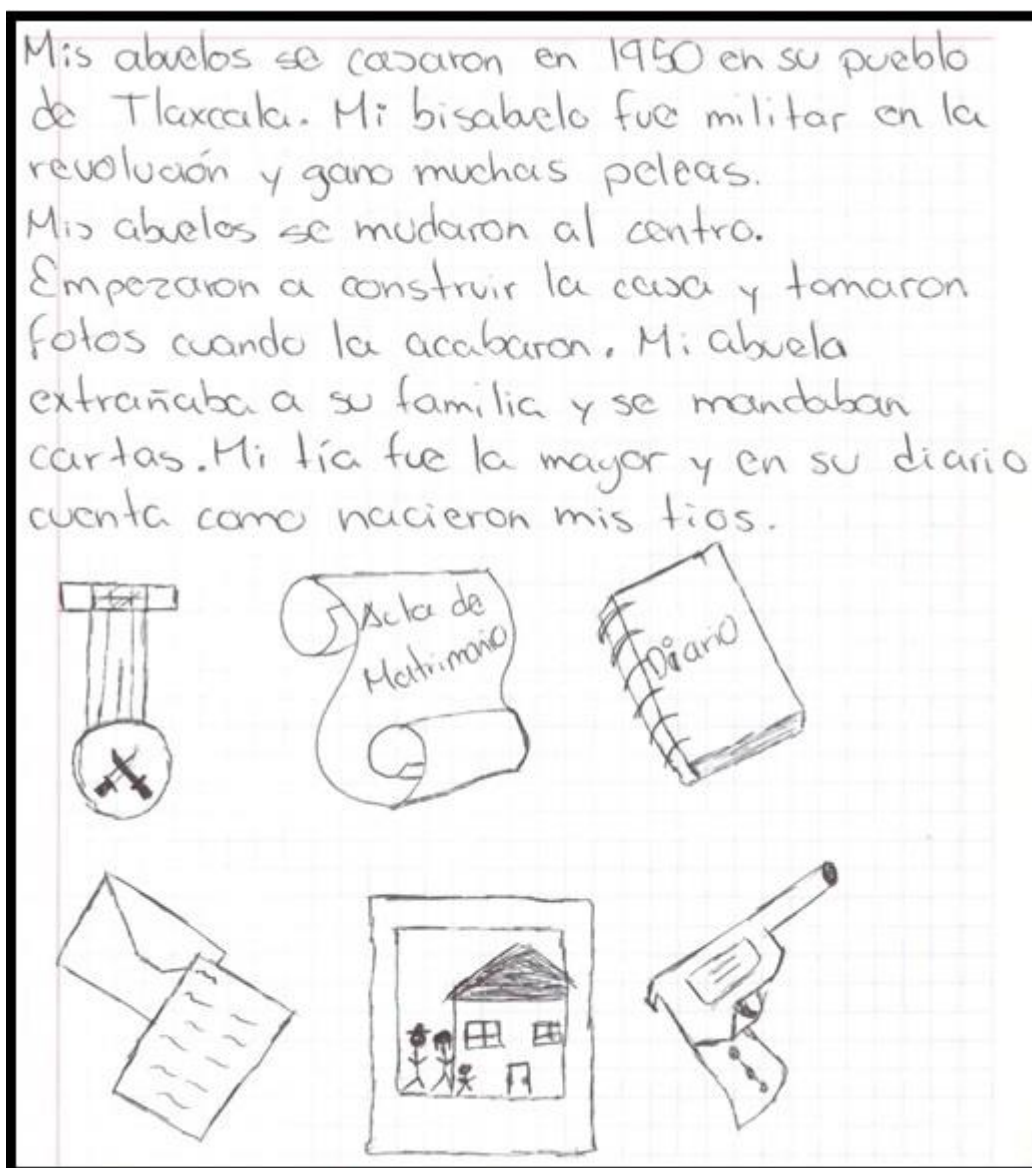 Mis abuelos se casaron en 1950 en su pueblo
de Tlaxcala. Mi bisabuelo fue militar en la
revolución y gano muchas peleas.
Mis abuelos se mudaron al centro.
Empezaron a construir la casa y tomaron
fotos cuando la acabaron. Mi abuela
extrañaba a su familia y se mandaban
cartas. Mi tía fue la mayor y en su diario
cuenta como nacieron mis tios.
Acta de
Matrimonio
Diario